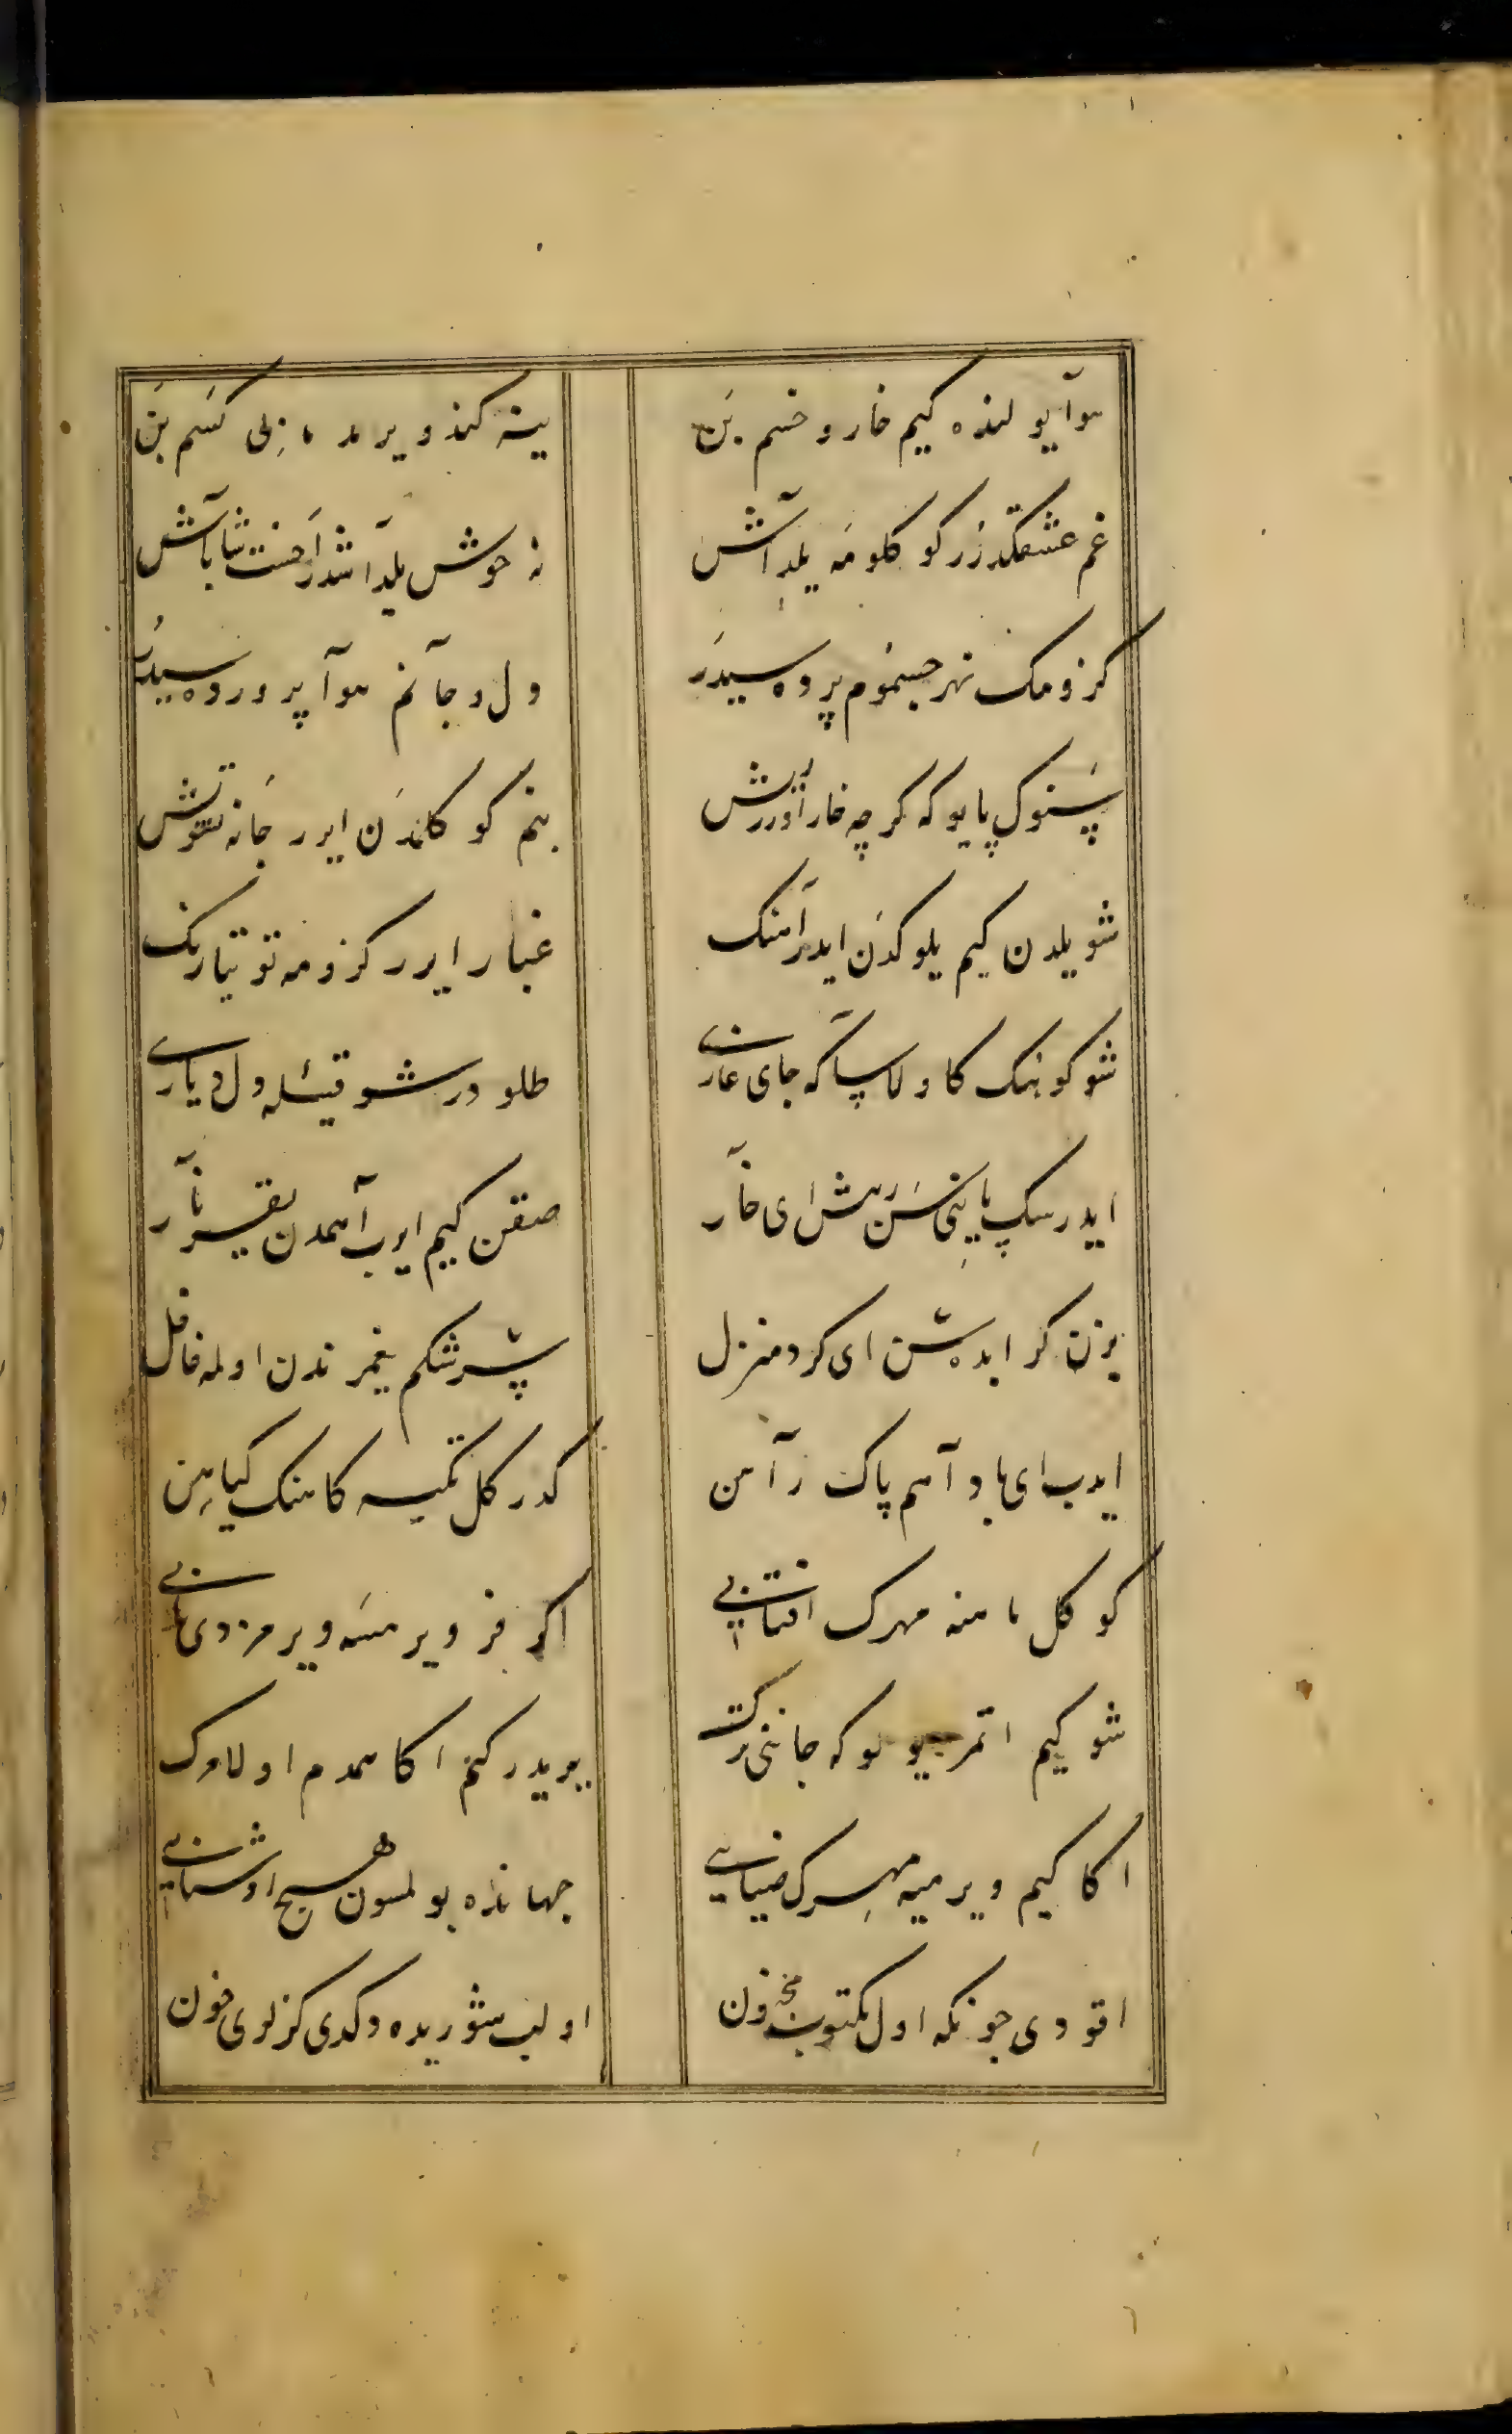 هوآ یولنده کیم خار و خسم بن
ینه کندو یرمده نلی کسم بن
غم عشقکدزر کوکلومه یلدآش
نه خوش یلدآشدر احسنت شاباش
کزومک نهر جسمم پرده سیدر
دل و جآنم هوآ پرورده سیدر
سنوک پایوکه کرچه خار اورر نش
بنم کوکلمدن ایرر جانه تشوش
شو یلدن کیم یلوکدن ایدر آهنک
غبار ایرر کزومه توتیا رنک
شو کونک کاولا سآکه جای عاری
طلودر شوقیله دل دیاری
ایدرسک پاینی سن ریش ای خآر
صقن کیم ایرب آهمدن یقر نآر
یزن کر ایده سن ای کرد منزل
سرشکم یغمرندن اولمه غافل
ایدب ای باد آهم پاک رآهن
کدر کل تکیه کاهنک کیاهن
کوکل مامنه مهرک افتابی
اکر فر ویرمسه ویرمزدی تابی
شو کیم اتمز یولوکه جاننی ترک
یریدر کنم اکا همدم اولا مرک
اکا کیم ویرمیه مهرک ضیایی
جهانده بولمسون هیچ اوشنایی
اقودی چونکه اول مکتوب مخزون
اولب شوریده دکدی کزلری خون